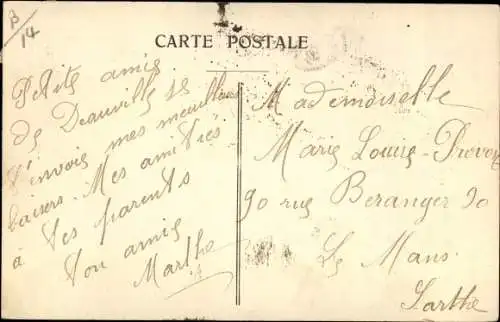 B/14
CARTE POSTALE
Petite amie
de Deauville je
t'envois mes meilleurs
baisers. Mes amitiés
à tes parents
Ton amie
Marthe
Mademoiselle
Marie Louise Prevost
90 rue Beranger 90
Le Mans
Sarthe